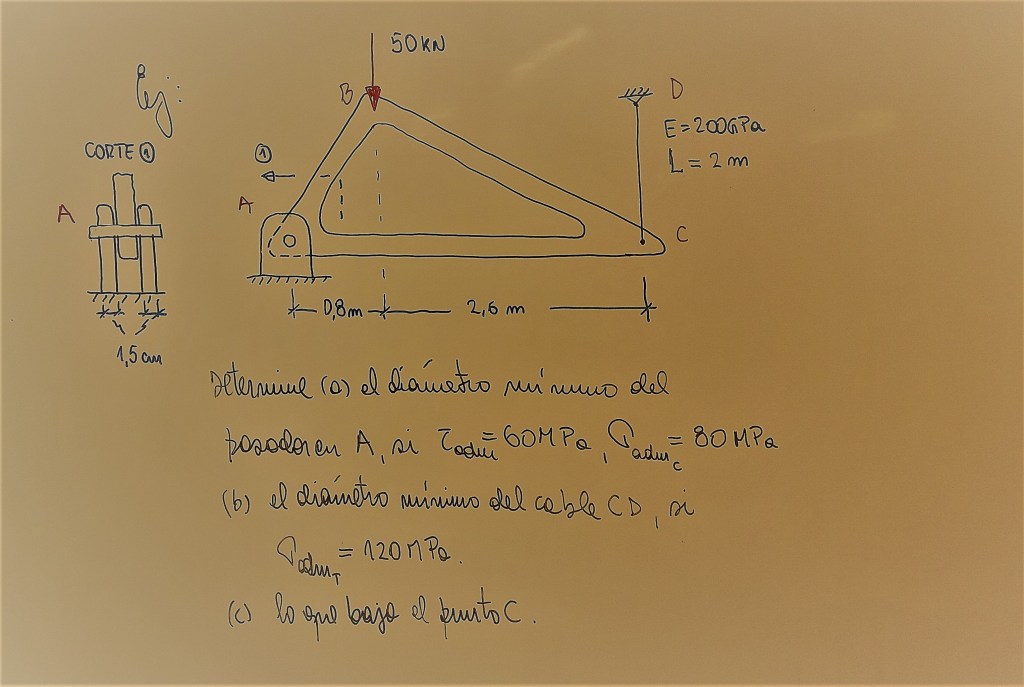 Ej:
50KN
B
D
E=200GPa
L=2m
CORTE ①
①
A
A
C
0,8m
2,6 m
1,5cm
Determine (a) el diámetro mínimo del
pasador en A, si τadm=60MPa, σadmc=80MPa
(b) el diámetro mínimo del cable CD, si
σadmT=120MPa.
(c) lo que baja el punto C.